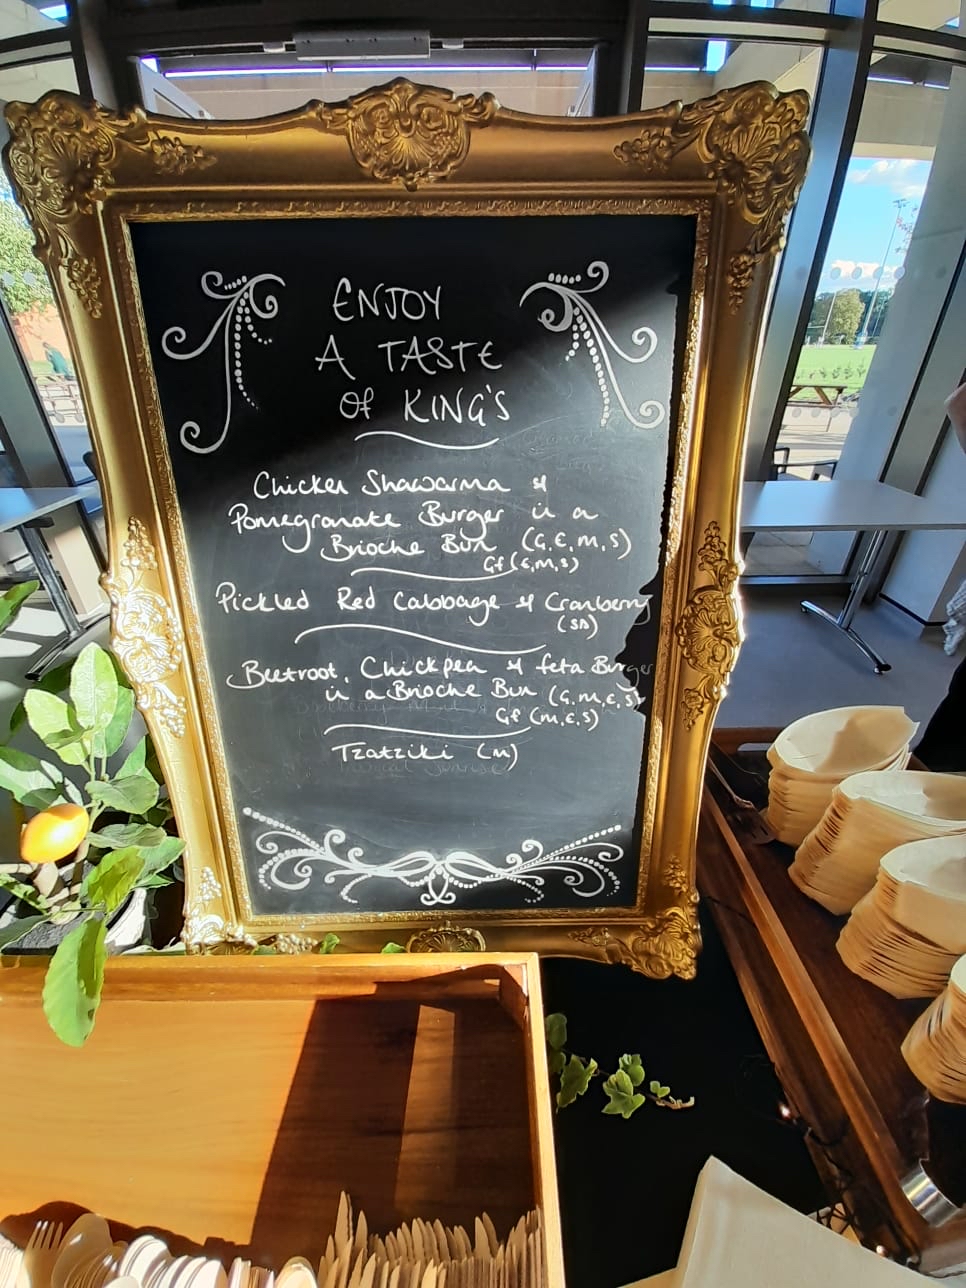 ENJOY
A TASTE
OF KING'S
Chicken Shawarma &
Pomegranate Burger in a
Brioche Bun (G,E,M,S)
Gf (E,M,S)
Pickled Red Cabbage & Cranberry
(SD)
Beetroot, Chickpea & feta Burger
in a Brioche Bun (G,M,E,S)
Gf (M,E,S)
Tzatziki (M)